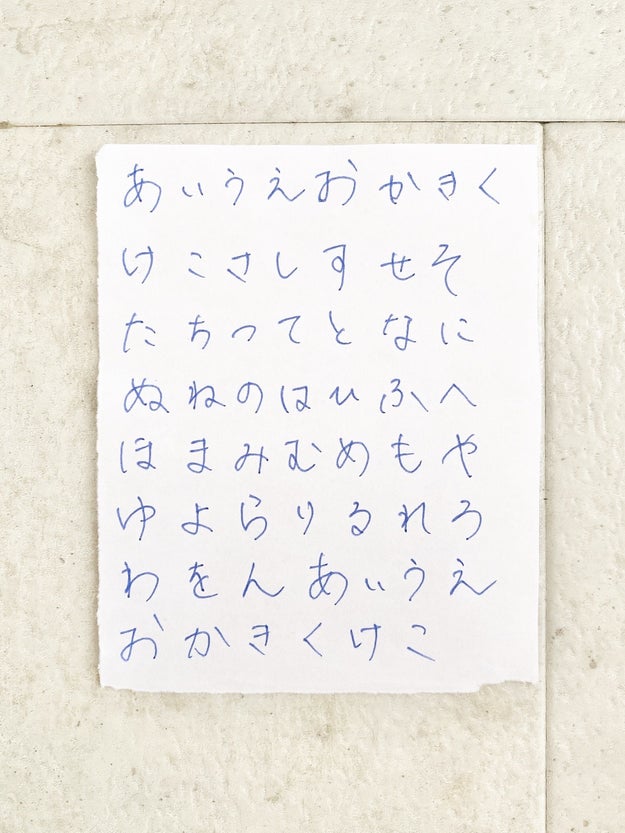 あいうえおかきく
けこさしすせそ
たちってとなに
ぬねのはひふへ
ほまみむめもや
ゆよらりるれろ
わをんあいうえ
おかきくけこ